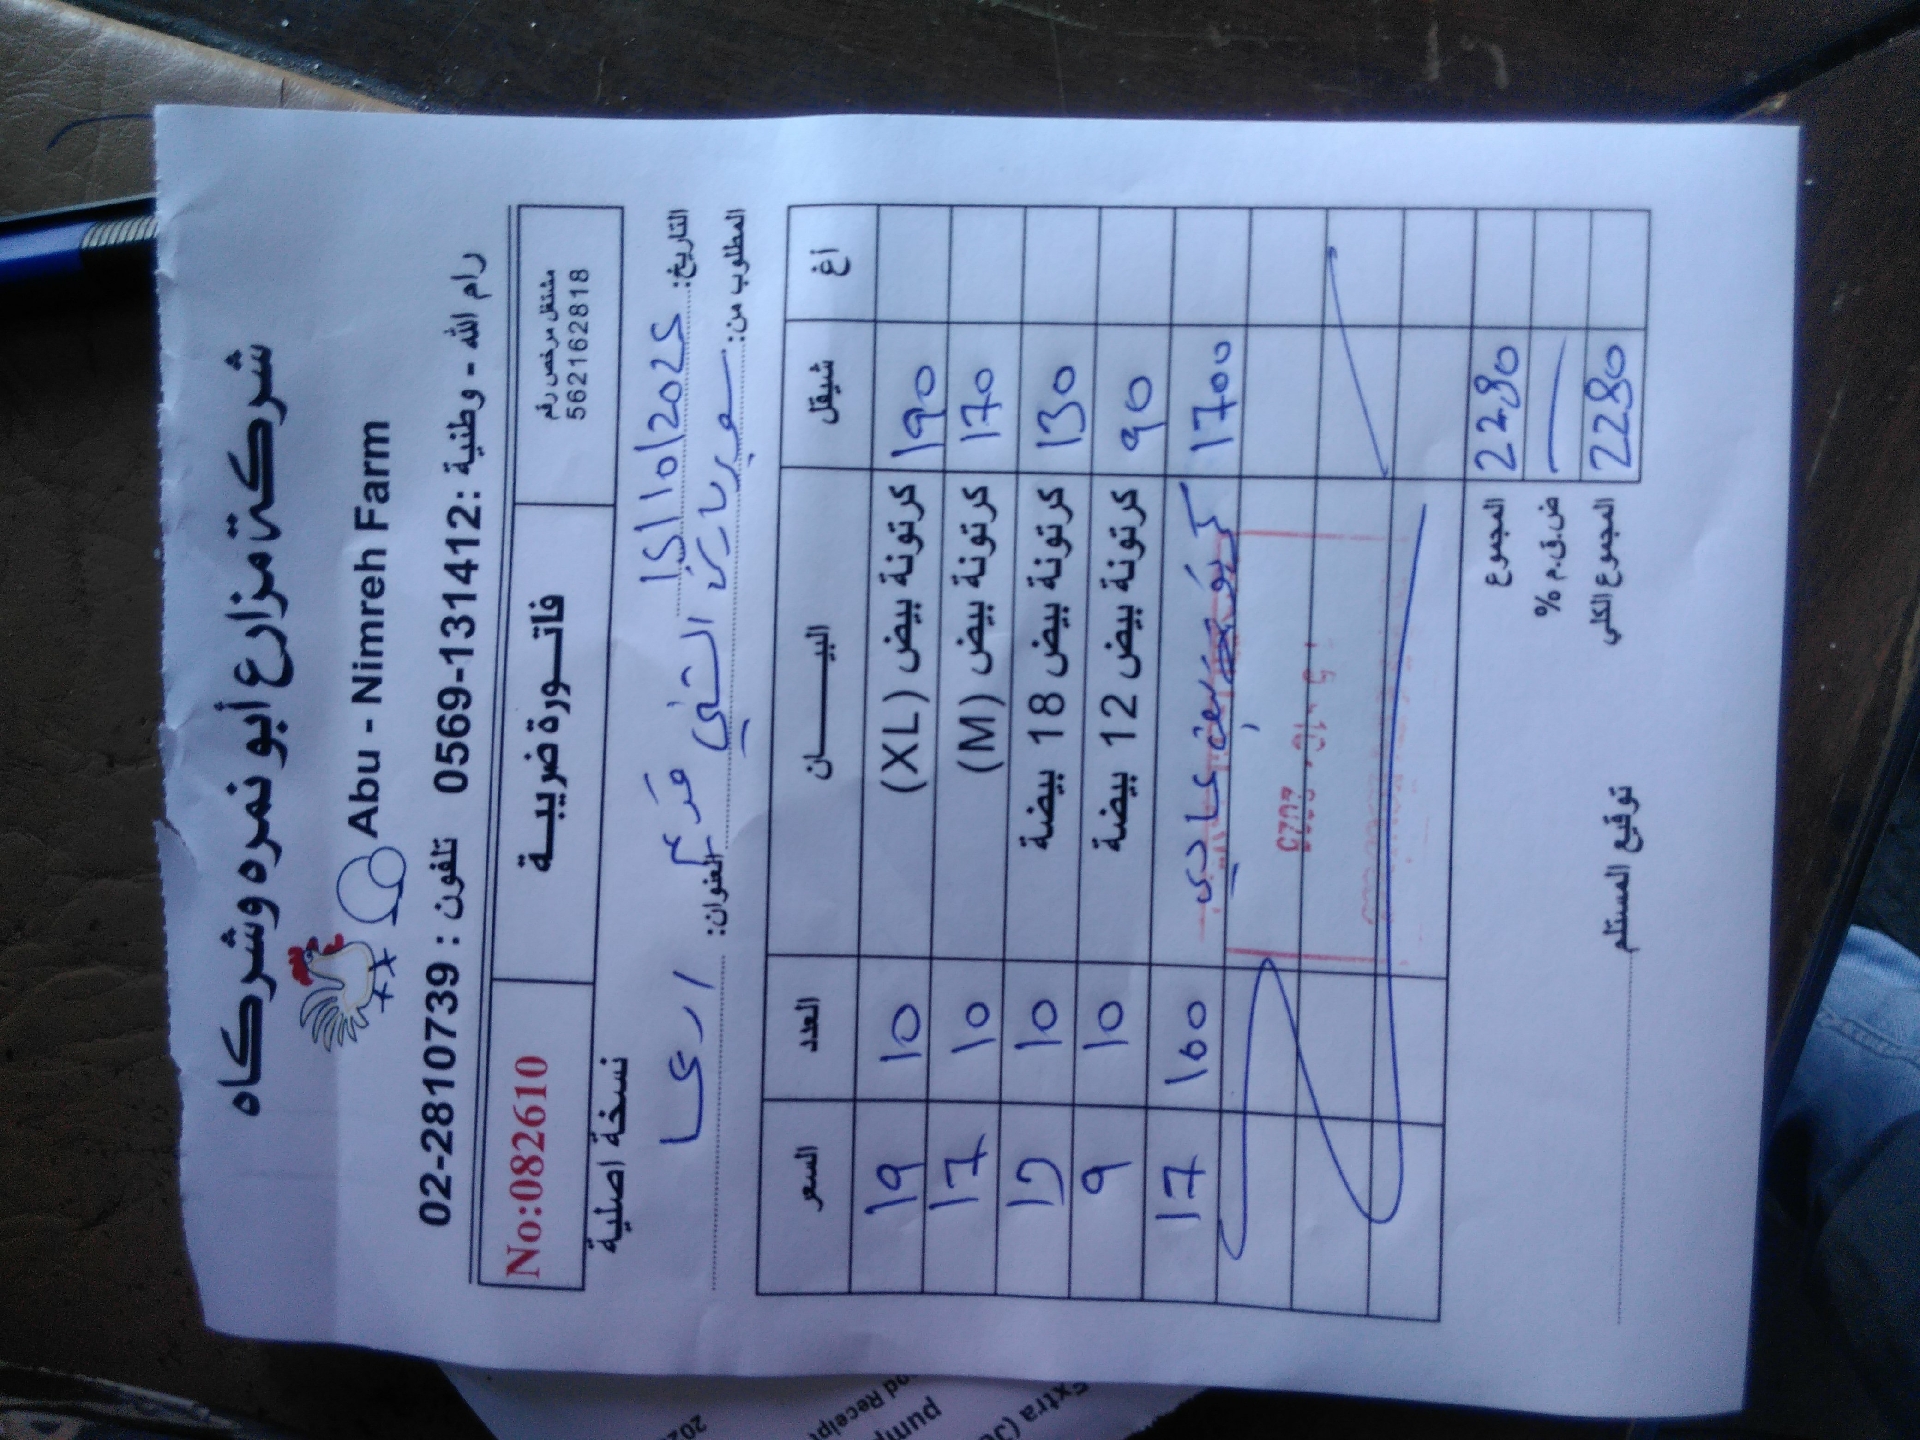 شركة مزارع أبو نمره وشركاه
Abu - Nimreh Farm
رام الله - وطنية: 0569-131412 تلفون : 02-2810739
مشتغل مرخص رقم
562162818
فاتـــورة ضريبيـــة
No:082610
نسخة اصلية
التاريخ: 15/10/2025
المطلوب من: سوبر ماركت الشني فرع
العنوان: اريحا
السعر العدد البيـــــــان شيقل أغ
19 10 كرتونة بيض (XL) 190
17 10 كرتونة بيض (M) 170
13 10 كرتونة بيض 18 بيضة 130
9 10 كرتونة بيض 12 بيضة 90
17 100 بيض عادي 1700
2025
المجموع 2280
ض.ق.م %
المجموع الكلي 2280
توقيع المستلم
Extra
pump
Receipt
202